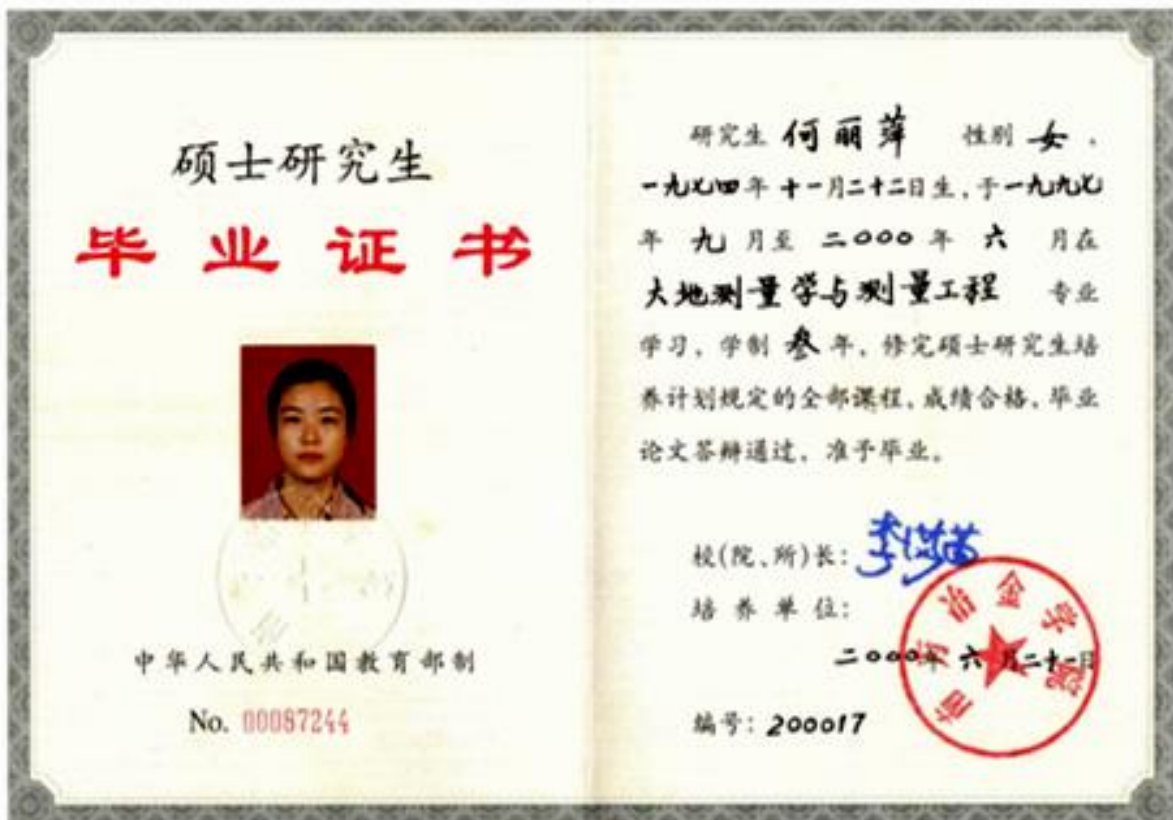 硕士研究生
毕业证书
中华人民共和国教育部制
No. 00087244
研究生 何丽萍 性别 女,
一九七四年十一月二十二日生,于一九九七
年 九 月至 二000 年 六 月在
大地测量学与测量工程 专业
学习,学制 叁 年,修完硕士研究生培
养计划规定的全部课程,成绩合格,毕业
论文答辩通过,准予毕业。
校(院、所)长:
培养单位:
南方冶金学院
二000年 六 月二十一日
编号:200017